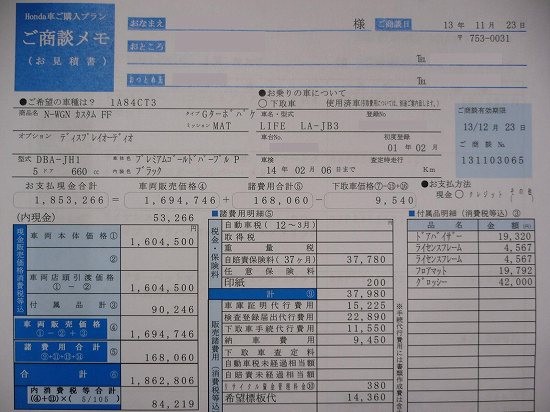 Honda車ご購入プラン
ご商談メモ
(お見積書)
おなまえ
様
ご商談日
13年 11月 23日
〒753-0031
おところ
℡
おつとめ先
℡
●ご希望の車種は? 1A84CT3
商品名 N-WGN カスタム FF
タイプ Gターボパッケ
ミッション MAT
オプション ディスプレイオーディオ
型式 DBA-JH1
5ドア 660cc
車体色 プレミアムゴールドパープルP
内装色 ブラック
●お乗りの車について
○下取車
使用済車
LIFE LA-JB3
登録No
車台No
初度登録
01年 02月
車検
14年 02月 06日まで
査定時走行
Km
ご商談有効期限
13/12月 23日
ご商談No
131103065
お支払現金合計
車両販売価格④
諸費用合計⑤
下取車価格⑦-⑮-⑯
1,853,266 = 1,694,746 + 168,060 - 9,540
●お支払方法
現金○ クレジット その他
(内現金) 53,266
現金販売価格消費税等込
車両本体価格① 1,604,500
②
車両店頭引渡価格 ①-② 1,604,500
付属品計③ 90,246
車両販売価格④ ①-②+③ 1,694,746
諸費用合計⑤ ⑨+⑪+⑬+⑭ 168,060
合計⑥ 1,862,806
内消費税等合計 (④+⑪)×(5/105) 84,219
■諸費用明細⑤
税金・保険料
自動車税(12~3月)
取得税
重量税
自賠責保険料(37ヶ月) 37,780
任意保険料
印紙 200
計⑨ 37,980
販売諸費用(消費税等込)
車庫証明代行費用 15,225
検査登録届出代行費用 22,890
下取車手続代行費用 11,550
納車費用 9,450
下取車査定料
自動車税未経過相当額
自賠責未経過相当額
リサイクル資金管理料金 380
希望標板代 14,360
■付属品明細(消費税等込)③
品名 金額
ドアバイザー 19,320
ライセンスフレーム 4,567
ライセンスフレーム 4,567
フロアマット 19,792
グロッシー 42,000